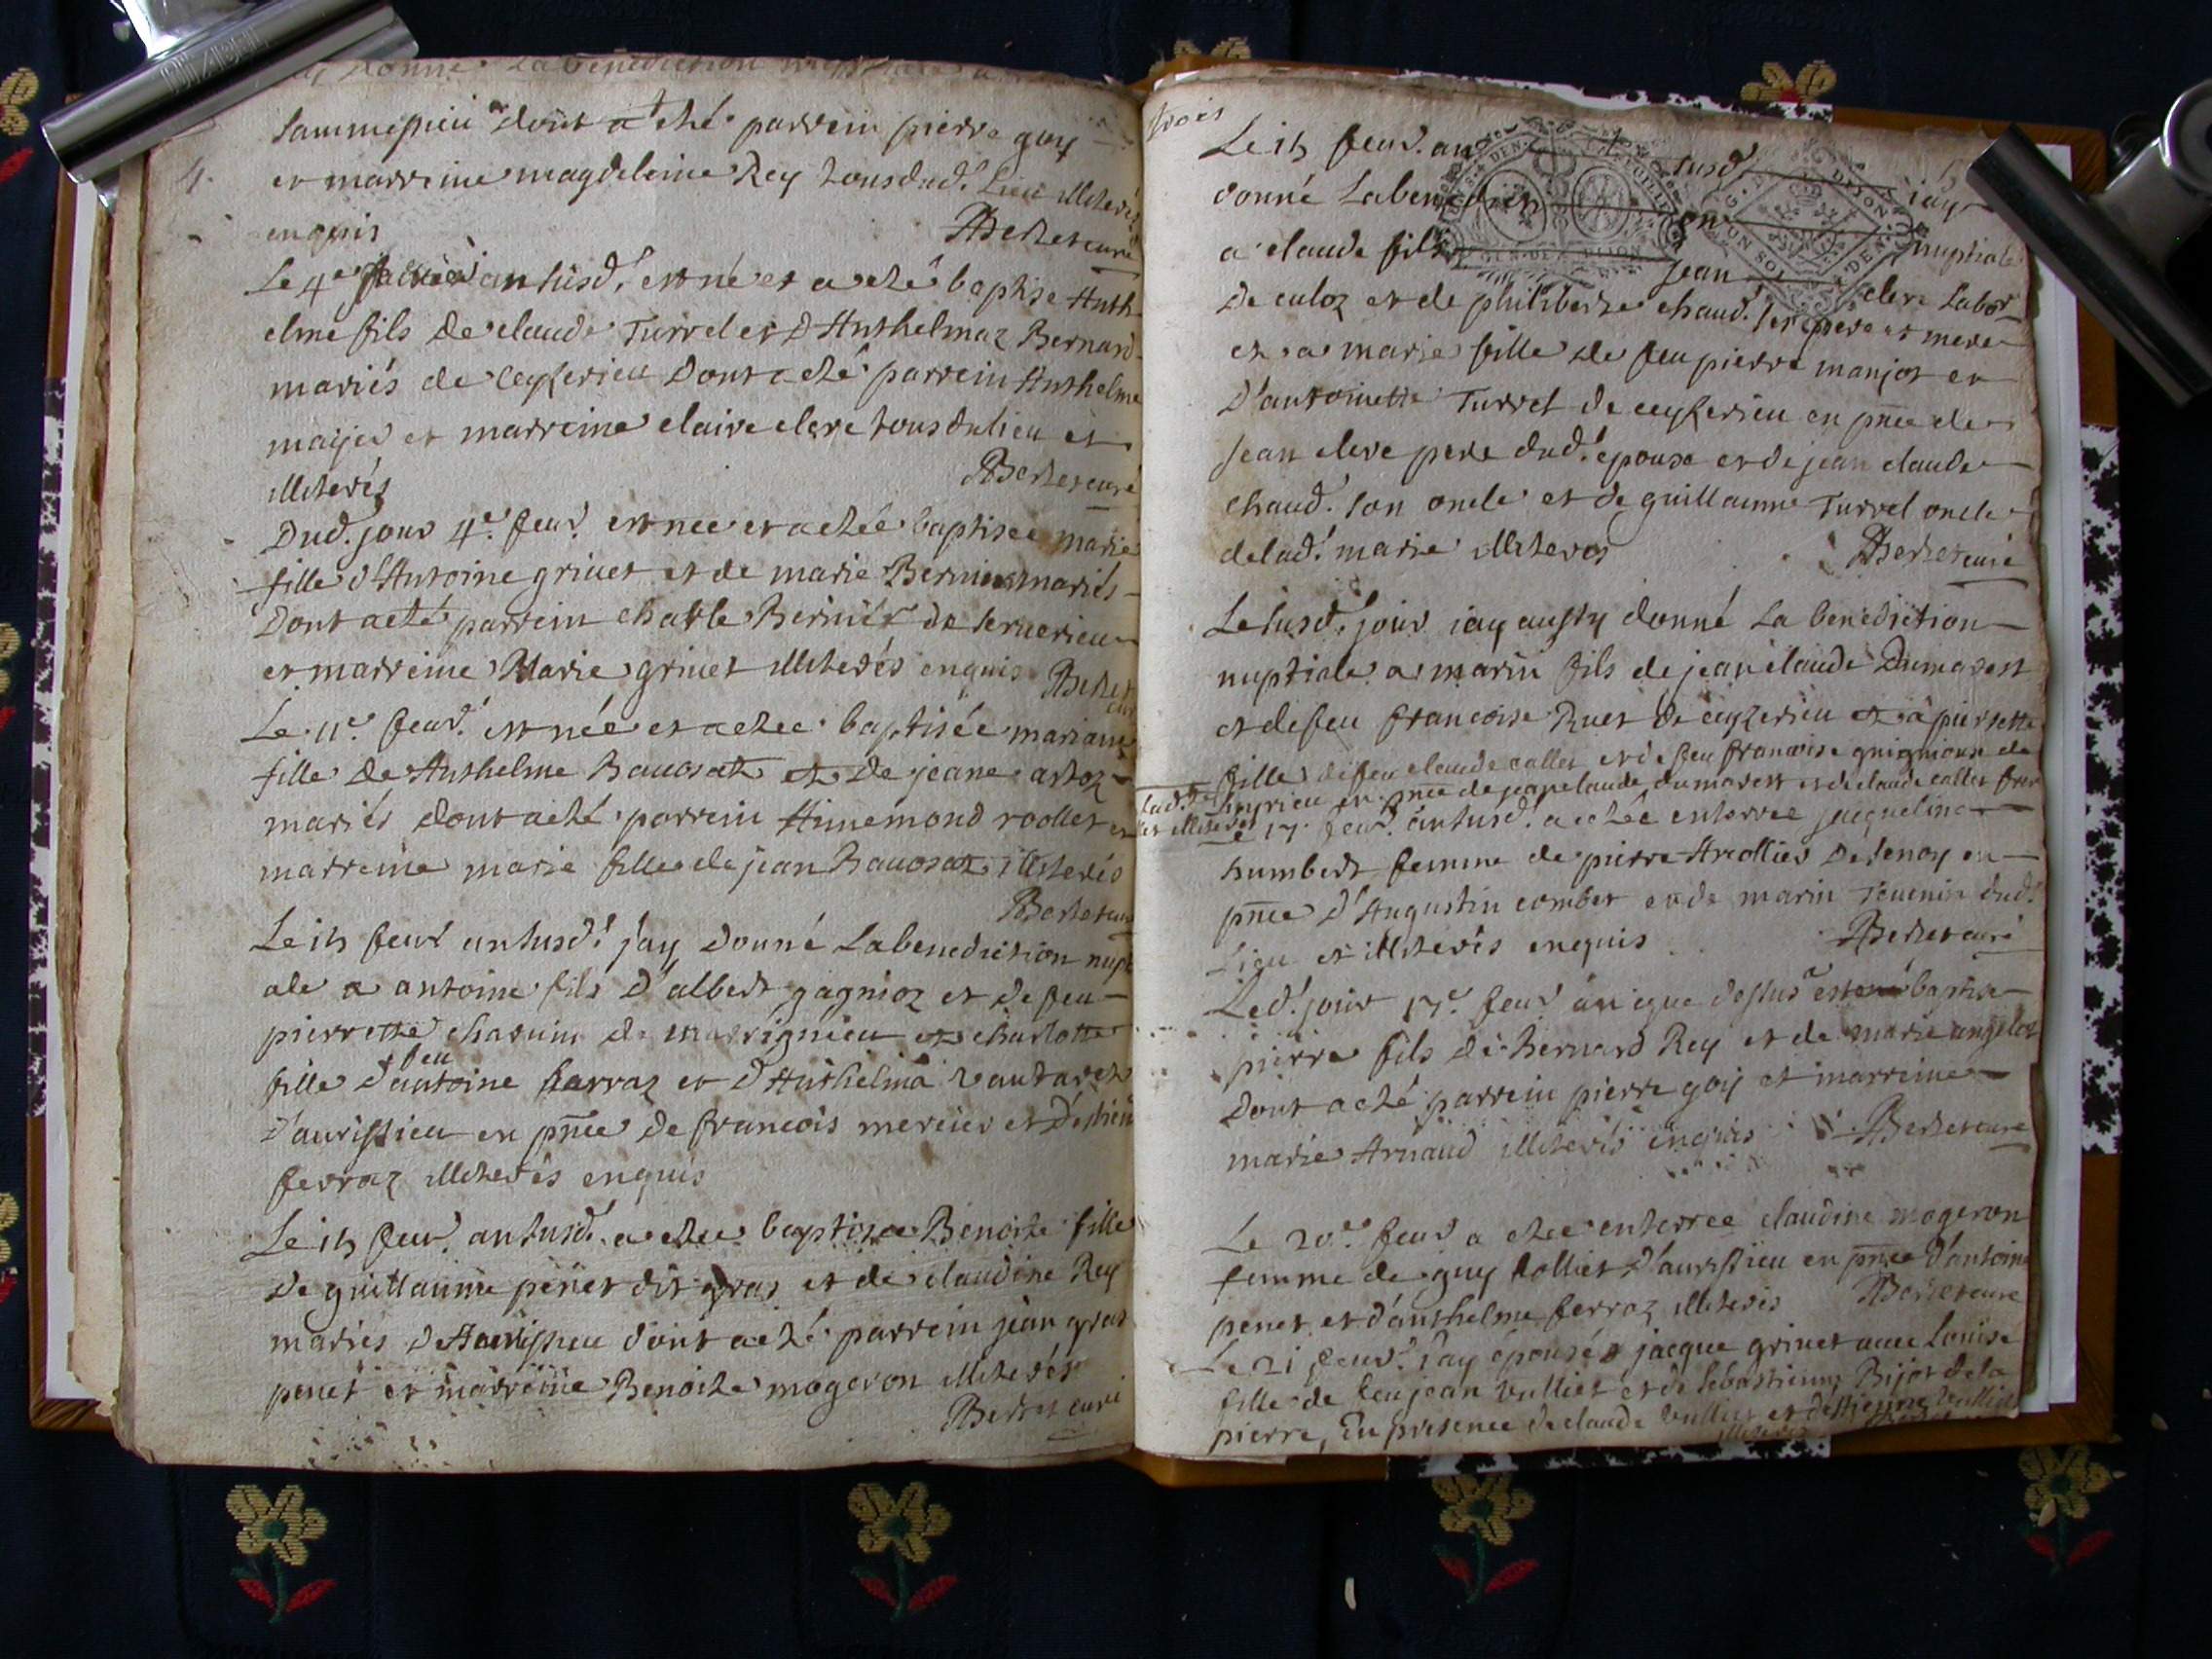 donné la benediction
4.
sammepieu dont a eté parrein pierre goy
et marreine magdeleine Rey tous dud. Lieu illiterés
enquis
Berlet curé
Le 4e an susd. est né et a eté baptisé Anth
elme fils de claude Turrel et d'Anthelmaz Bernard
mariés de ceyzerieu Dont a eté parrein Anthelme
et marreine claire clerc tous du lieu et
illiterés
Berlet curé
Dud. jour 4e. feur. est née et a etée baptisée marie
fille d'Antoine griuet et de marie Bernier mariés
Dont a eté parrein charle Bernier de seruerieu
et marreine Marie griuet illiterés enquis
Berlet cur
Le 11e feur. est née et a etée baptisée mariane
fille de Anthelme Bauosat et de jeane artoz
mariés dont a eté parrein Ainemond roollet et
marreine marie fille de jean Bauosat illiterés
Berlet curé
Le 15 feur an susd. j'ay donné La benediction nupt
ale a antoine fils d'albert gagnioz et de feu
pierrette chasuin de marignieu et charlotte
fille d'antoine ferraz et d'Anthelma
feu
d'aurissieu en pnce de francois mercier et d'
ferraz illiterés enquis
Le 15 feur. an susd. a etée baptisee Benoite fille
de guillaume penet dit gras et de claudine Rey
mariés d'Aurissieu dont a eté parrein jean gras
penet et marreine Benoite mogeron illiterés
Berlet curé
trois
Le 15 feur. an susd. iay
donné La benediction nuptiale
a claude fils jean clerc Labor
De culoz et de philiberte chaud. ses pere et mere
et a marie fille de feu pierre manjot et
D'antoinette Turrel de ceyzerieu en pnce de
Jean clerc pere dud. epoux et de jean claude
chaud. son oncle et de guillaume Turrel oncle
de lad. marie illiteres
Berlet curé
Le susd. jour iay aussy donné La benediction
nuptiale a marin fils de jean claude Dumarest
et de feu francoise Ruet de ceyzerieu et a pierrette
fille de feu claude callet et de feu francoise guignioux de
en pnce de jean claude dumarest et de claude callet frer
illiterés
Le 17. feur. an susd. a etée enterrée jacqueline
humbert femme de pierre Arcollier de senoy en
pnce d'Augustin combet et de marin Teuenin dud.
Lieu et illiterés enquis
Berlet curé
Led. jour 17e. feur an que dessus est né baptisé
pierre fils de Bernard Rey et de marie anselot
Dont a eté parrein pierre goy et marreine
marie Arnaud illiterés enquis
Berlet curé
Le 20e. feur a etee enterree claudine mogeron
femme de guy Rollier d'aurissieu en pnce d'antoine
penet et d'anthelme ferraz illiterés
Berlet curé
Le 21 feur. J'ay épousé jacque griuet auec Louise
fille de feu jean Vulliet et de sebastienne Bijot de la
pierre, En presence de claude Vulliet et d'Etienne Vulliet
illiterés